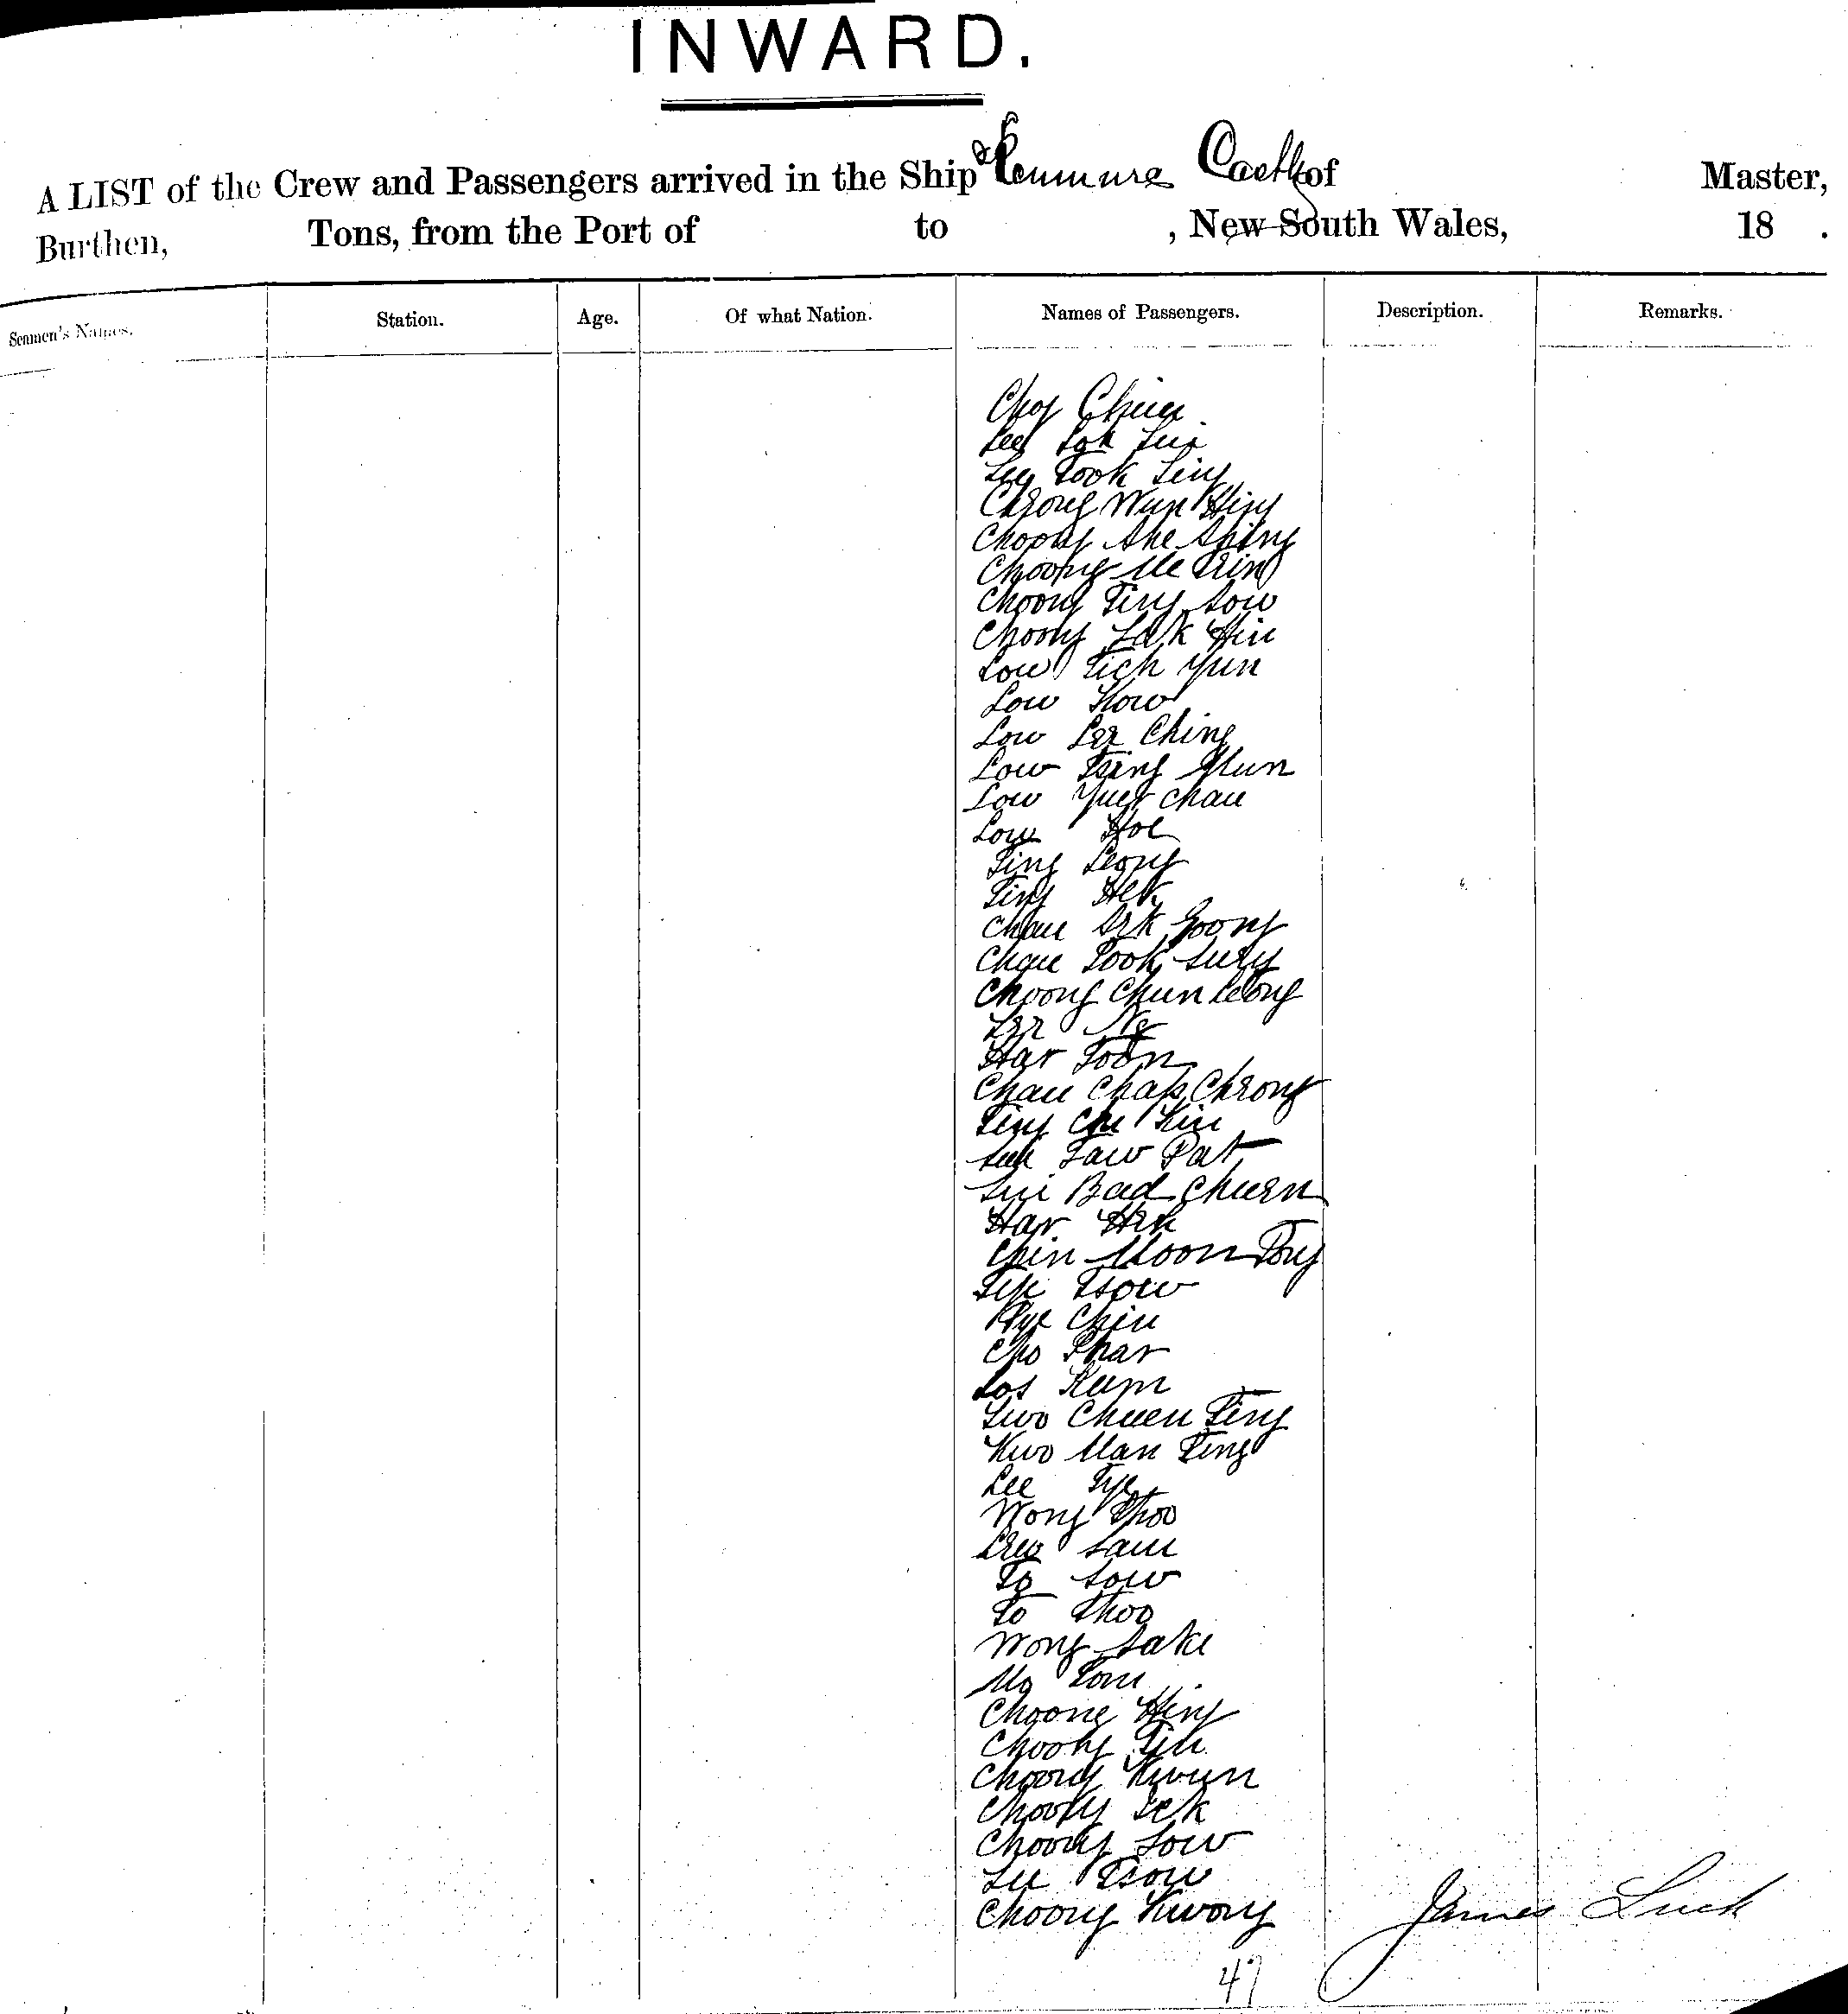 INWARD.
A LIST of the Crew and Passengers arrived in the Ship Kenmure Castle of Master,
Burthen, Tons, from the Port of to , New South Wales, 18 .
Seamen's Names. Station. Age. Of what Nation. Names of Passengers. Description. Remarks.
Choy Chiu
Lee Sok
Lee Took Ling
Cheong Wun Hing
Choong She Shing
Choong
Choong Ting Sow
Choong Hin
Low Tich Yun
Low How
Low Lee Ching
Low Tsing Mun
Low Yuet Chau
Low Hoe
Ting Leong
Ting Hek
Chau Sek Goong
Chau Took Sung
Choong Chun Leong
Ng
Har Toon
Chau Chap Cheong
Ting Che Kin
Taw Pat
Sui Bad Chuen
Har Hek
Chin Moon Tong
Tsow
Chiu
Cho Phar
Kum
Chuen Ting
Kwo Man Ting
Lee Tye
Wong Thoo
Sam
To Sow
To Thoo
Wong
Choong Hing
Choong
Choong Kwun
Choong Tek
Choong Sow
Tsow
Choong Kwong
James Luck
47